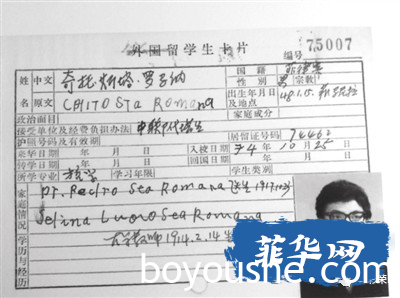 外国留学生卡片
编号 75007
姓名 中文 奇托·斯塔·罗马纳 国籍 菲律宾
原文 CHITO Sta Romana 性别 男 宗教
政治面目 出生年月日及地点 48.1.5.
家庭成分
接受单位及经费负担办法 中联部代培生
护照号码及有效期 居留证号码 74462
来华日期 年 月 日 入校日期 74年10月25日
转学日期 年 月 日 回国日期 年 月 日
所学专业 哲学 学习年限 学生类别
家庭情况 Dr. Pedro Sta Romana (医生
Selina Luono Sta Romana
大学教师 1914.2.14生
学历与经历
菲华网
boyoushe.com